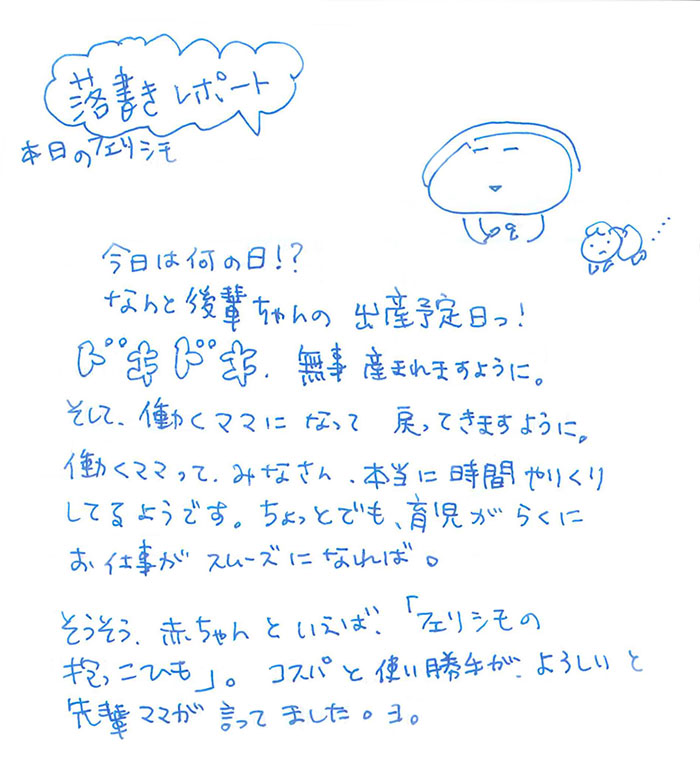 落書きレポート
本日のフェリシモ
今日は何の日!?
なんと後輩ちゃんの 出産予定日っ!
ドキドキ. 無事産まれますように。
そして、働くママになって 戻ってきますように。
働くママって、みなさん、本当に時間やりくり
してるようです。ちょっとでも、育児がらくに
お仕事がスムーズになれば。
そうそう、赤ちゃんといえば、「フェリシモの
抱っこひも」。コスパと使い勝手が、よろしいと
先輩ママが言ってました。ヨ。